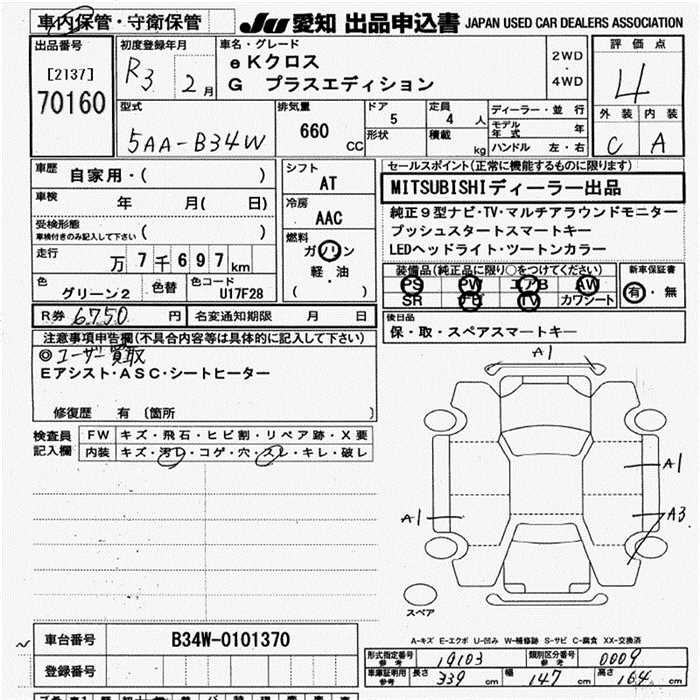 車内保管・守衛保管
JU 愛知 出品申込書 JAPAN USED CAR DEALERS ASSOCIATION
出品番号
[2137]
70160
初度登録年月
R3 2月
車名・グレード
eKクロス
G プラスエディション
2WD
・
4WD
評価点
4
外装 内装
C A
型式
5AA-B34W
排気量
660 CC
ドア
5
形状
定員
4 人
積載
kg
ディーラー・並行
モデル年式 年
ハンドル 左・右
車歴
自家用・( )
車検
年 月( 日)
受検形態
車検付きのみ記入して下さい ( )
走行
万 7千697 km
色
グリーン2
色替
色コード
U17F28
シフト
AT
冷房
AAC
燃料
ガソリン
軽・油
( )
セールスポイント(正常に機能するものに限ります)
MITSUBISHIディーラー出品
純正9型ナビ・TV・マルチアラウンドモニター
プッシュスタートスマートキー
LEDヘッドライト・ツートンカラー
装備品(純正品に限り○をつけてください)
PS PW エアB AW
SR ナビ TV カワシート
新車保証書
有・無
後日品
保・取・スペアスマートキー
R券 6750 円
名変通知期限 月 日
注意事項申告欄(不具合内容等は具体的に記入して下さい)
◎ユーザー買取
Eアシスト・ASC・シートヒーター
修復歴 有 〔箇所 〕
検査員記入欄
FW キズ・飛石・ヒビ割・リペア跡・X要
内装 キズ・汚レ・コゲ・穴・スレ・キレ・破レ
A1
A1
A1
A3
スペア
A-キズ E-エクボ U-凹み W-補修跡 S-サビ C-腐食 XX-交換済
車台番号 B34W-0101370
登録番号
形式指定番号 参考 19103
類別区分番号 参考 0009
車庫証明用 参考 長さ 339 cm 幅 147 cm 高さ 164 cm